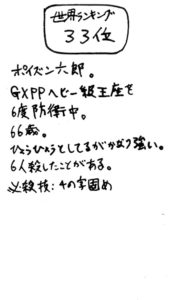 世界ランキング
33位
ポイズン六郎。
GXPPヘビー級王座を
6度防衛中。
66歳。
ひょうひょうとしてるがかなり強い。
6人殺したことがある。
必殺技:4の字固め